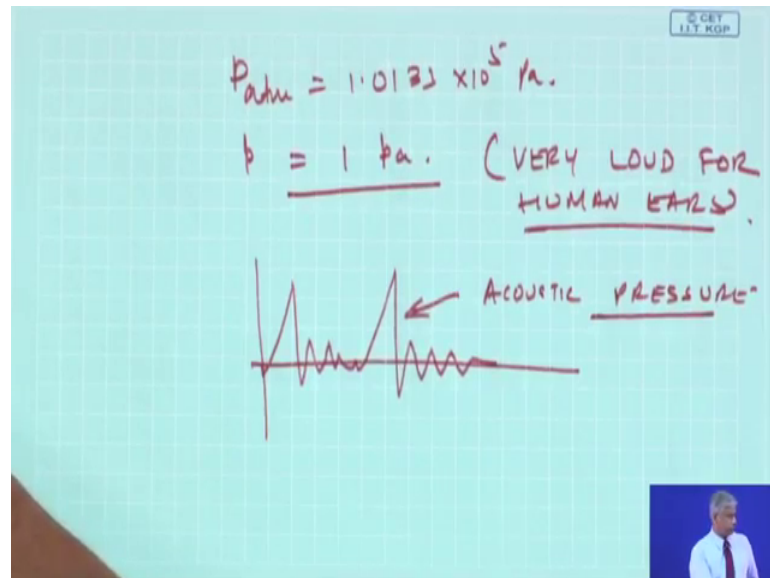 © CET
I.I.T. KGP
Patm = 1.0135 ×10⁵ Pa.
p = 1 pa. (VERY LOUD FOR
HUMAN EARS).
ACOUSTIC PRESSURE